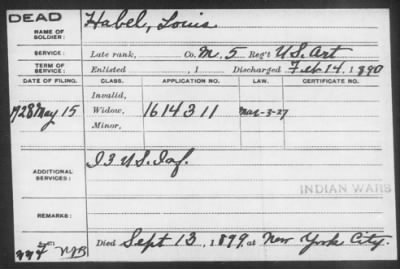 DEAD
NAME OF SOLDIER: Habel, Louis
SERVICE: Late rank, Co. M. 5 Reg't U.S. Art
TERM OF SERVICE: Enlisted , 1 Discharged Feb. 14. 1 890
DATE OF FILING. CLASS. APPLICATION NO. LAW. CERTIFICATE NO.
Invalid,
1928 May 15 Widow, 1614311 Mar-3-27
Minor,
ADDITIONAL SERVICES: I 3 U.S. Inf.
INDIAN WARS
REMARKS:
Died Sept 13, 1 899, at New York City.